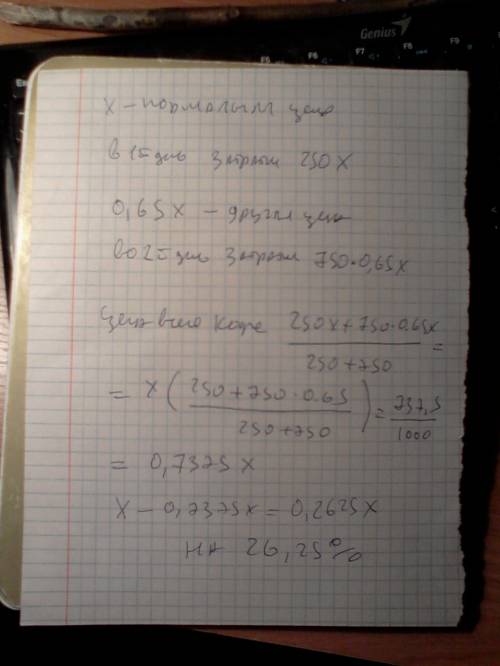 Genius
F5 F6 F7 F8 F9
X - нормальная цена
в 1й день затраты 250X
0,65X - другая цена
во 2й день затраты 750·0,65X
Цена всего кофе (250X + 750·0.65X)/(250+750) =
= X((250+750·0.65)/(250+750)) = 737,5/1000
= 0,7375X
X - 0,7375X = 0,2625X
на 26,25%